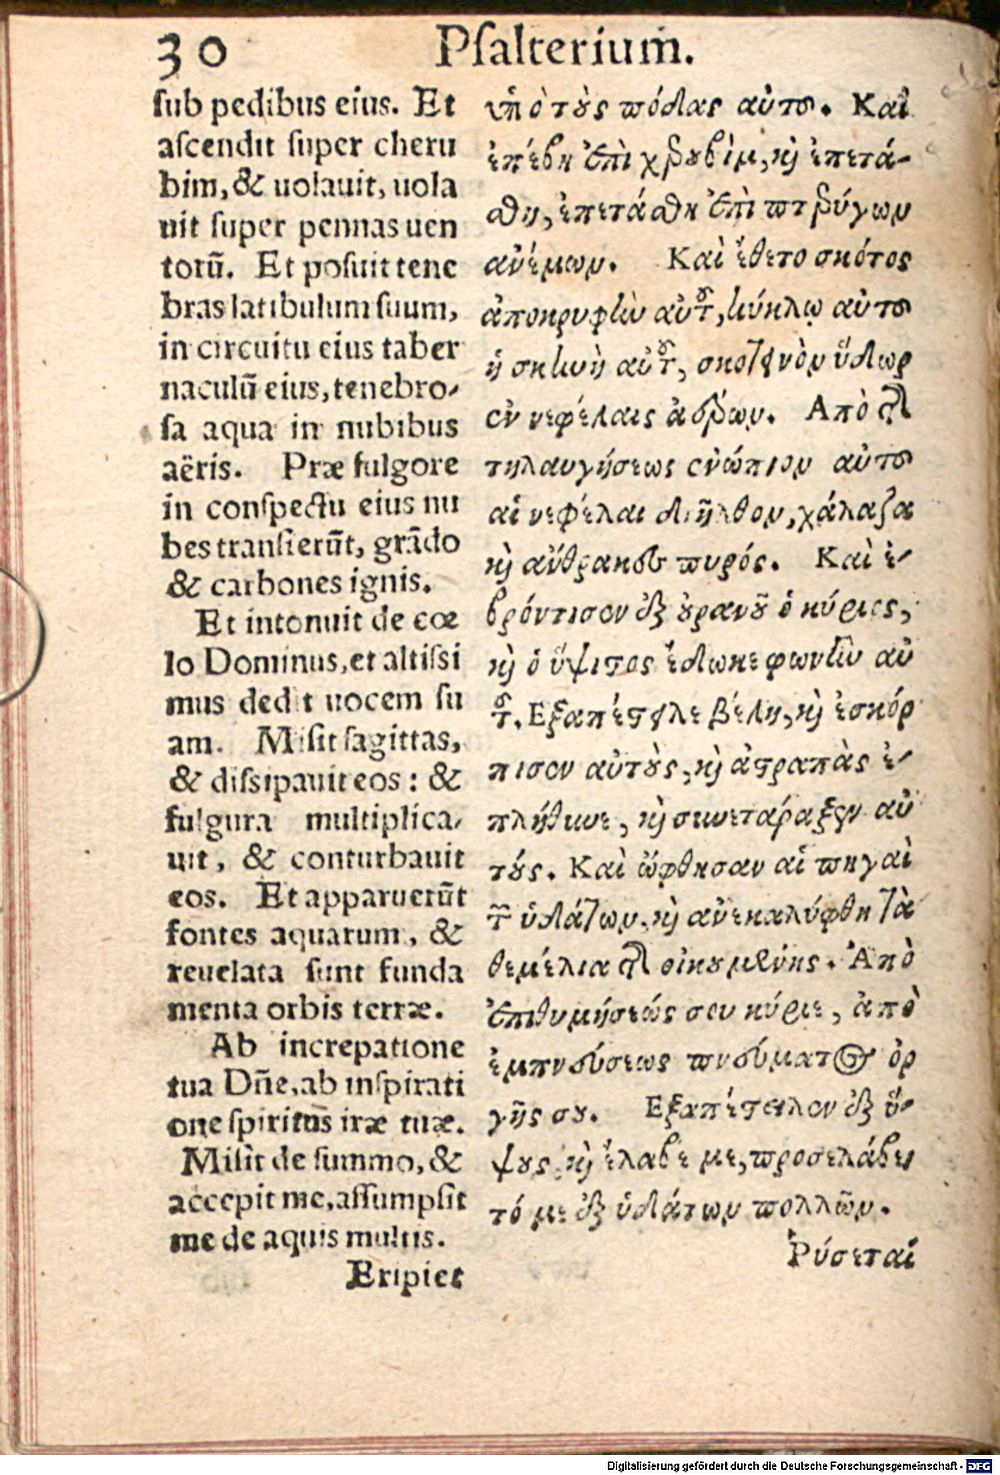 30 Psalterium.
sub pedibus eius. Et
ascendit super cheru
bim, & uolauit, uola
uit super pennas uen
torū. Et posuit tene
bras latibulum suum,
in circuitu eius taber
naculū eius, tenebro-
sa aqua in nubibus
aëris. Præ fulgore
in conspectu eius nu
bes transierūt, grādo
& carbones ignis.
Et intonuit de cœ
lo Dominus, et altissi
mus dedit uocem su
am. Misit sagittas,
& dissipauit eos: &
fulgura multiplica-
uit, & conturbauit
eos. Et apparuerūt
fontes aquarum, &
reuelata sunt funda
menta orbis terræ.
Ab increpatione
tua Dñe, ab inspirati
one spiritus iræ tuæ.
Misit de summo, &
accepit me, assumpsit
me de aquis multis.
Eripiet
ὑπὸ τοὺς πόδας αὐτοῦ. Καὶ
ἐπέβη ἐπὶ χερουβὶμ, καὶ ἐπετά-
σθη, ἐπετάσθη ἐπὶ πτερύγων
ἀνέμων. Καὶ ἔθετο σκότος
ἀποκρυφὴν αὐτοῦ, κύκλῳ αὐτοῦ
ἡ σκηνὴ αὐτοῦ, σκοτεινὸν ὕδωρ
ἐν νεφέλαις ἀέρων. Ἀπὸ τῆς
τηλαυγήσεως ἐνώπιον αὐτοῦ
αἱ νεφέλαι διῆλθον, χάλαζα
καὶ ἄνθρακες πυρός. Καὶ ἐ-
βρόντησεν ἐξ οὐρανοῦ ὁ κύριος,
καὶ ὁ ὕψιστος ἔδωκε φωνὴν αὐ
τοῦ. Εξαπέστειλε βέλη, καὶ ἐσκόρ
πισεν αὐτοὺς, καὶ ἀστραπὰς ἐ-
πλήθυνε, καὶ συνετάραξεν αὐ
τούς. Καὶ ὤφθησαν αἱ πηγαὶ
τῶν ὑδάτων, καὶ ἀνεκαλύφθη τὰ
θεμέλια τῆς οἰκουμένης. Ἀπὸ
ἐπιθυμήσεώς σου κύριε, ἀπὸ
ἐμπνεύσεως πνεύματος ὀρ
γῆς σου. Εξαπέστειλεν ἐξ ὕ-
ψους, καὶ ἔλαβέ με, προσελάβε
τό με ἐξ ὑδάτων πολλῶν.
Ῥύσεταί
Digitalisierung gefördert durch die Deutsche Forschungsgemeinschaft - DFG